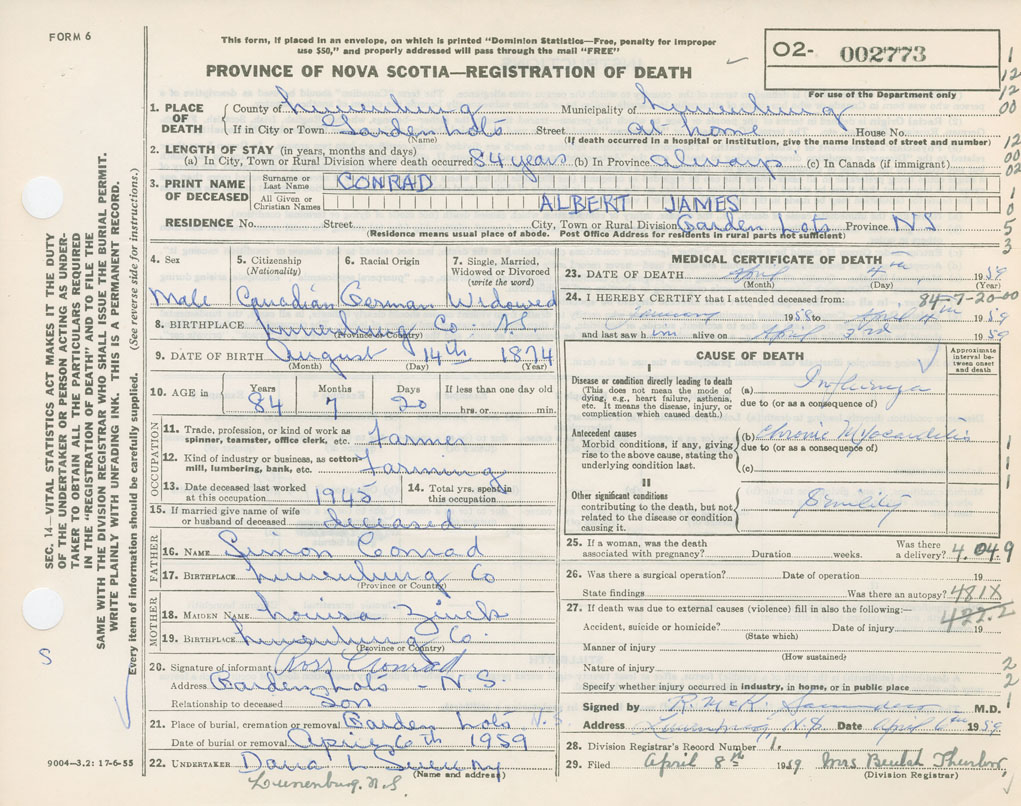 FORM 6
This form, if placed in an envelope, on which is printed "Dominion Statistics—Free, penalty for improper
use $50," and properly addressed will pass through the mail "FREE"
O2- 002773
For use of the Department only
PROVINCE OF NOVA SCOTIA—REGISTRATION OF DEATH
SEC. 14—VITAL STATISTICS ACT MAKES IT THE DUTY
OF THE UNDERTAKER OR PERSON ACTING AS UNDER-
TAKER TO OBTAIN ALL THE PARTICULARS REQUIRED
IN THE "REGISTRATION OF DEATH" AND TO FILE THE
SAME WITH THE DIVISION REGISTRAR WHO SHALL ISSUE THE BURIAL PERMIT.
WRITE PLAINLY WITH UNFADING INK. THIS IS A PERMANENT RECORD.
Every item of information should be carefully supplied. (See reverse side for instructions.)
1. PLACE OF DEATH County of Lunenburg Municipality of Lunenburg
If in City or Town Garden Lots Street at home House No.
(Name) (If death occurred in a hospital or institution, give the name instead of street and number)
2. LENGTH OF STAY (in years, months and days)
(a) In City, Town or Rural Division where death occurred 84 years (b) In Province always (c) In Canada (if immigrant)
3. PRINT NAME OF DECEASED Surname or Last Name CONRAD
All Given or Christian Names ALBERT JAMES
RESIDENCE No. Street City, Town or Rural Division Garden Lots Province NS
(Residence means usual place of abode. Post Office Address for residents in rural parts not sufficient)
4. Sex 5. Citizenship (Nationality) 6. Racial Origin 7. Single, Married, Widowed or Divorced (write the word)
Male Canadian German Widowed
8. BIRTHPLACE Lunenburg Co. N.S.
(Province or Country)
9. DATE OF BIRTH August 14th 1874
(Month) (Day) (Year)
10. AGE in Years 84 Months 7 Days 20 If less than one day old hrs. or min.
OCCUPATION
11. Trade, profession, or kind of work as spinner, teamster, office clerk, etc. Farmer
12. Kind of industry or business, as cotton mill, lumbering, bank, etc. Farming
13. Date deceased last worked at this occupation 1945 14. Total yrs. spent in this occupation
15. If married give name of wife or husband of deceased deceased
FATHER
16. NAME Simon Conrad
17. BIRTHPLACE Lunenburg Co
(Province or Country)
MOTHER
18. MAIDEN NAME Louisa Zinck
19. BIRTHPLACE Lunenburg Co.
(Province or Country)
20. Signature of informant Ross Conrad
Address Garden Lots - N.S.
Relationship to deceased Son
21. Place of burial, cremation or removal Garden Lots N.S.
Date of burial or removal April 6th 1959
22. UNDERTAKER Dana L Sweeny
(Name and address)
Lunenburg N.S.
9004—3.2: 17-6-55
MEDICAL CERTIFICATE OF DEATH
23. DATE OF DEATH April 4th 1959
(Month) (Day) (Year)
84-7-20-00
24. I HEREBY CERTIFY that I attended deceased from:
January 1958 to April 4th 1959
and last saw him alive on April 3rd 1959
CAUSE OF DEATH
Approximate interval between onset and death
I
Disease or condition directly leading to death
(This does not mean the mode of dying, e.g., heart failure, asthenia, etc. It means the disease, injury, or complication which caused death.)
(a) Influenza
due to (or as a consequence of)
Antecedent causes
Morbid conditions, if any, giving rise to the above cause, stating the underlying condition last.
(b) Chronic Myocarditis
due to (or as a consequence of)
(c)
II
Other significant conditions
contributing to the death, but not related to the disease or condition causing it.
Senility
25. If a woman, was the death associated with pregnancy? Duration weeks. Was there a delivery?
4.049
26. Was there a surgical operation? Date of operation 19
State findings Was there an autopsy?
481X
27. If death was due to external causes (violence) fill in also the following:—
422.2
Accident, suicide or homicide? Date of injury 19
(State which)
Manner of injury
(How sustained)
Nature of injury
Specify whether injury occurred in industry, in home, or in public place
Signed by R. McK. Saunders M.D.
Address Lunenburg, N.S. Date April 6th 1959
28. Division Registrar's Record Number 1.
29. Filed April 8th 1959 Mrs Beulah Thurlow
(Division Registrar)